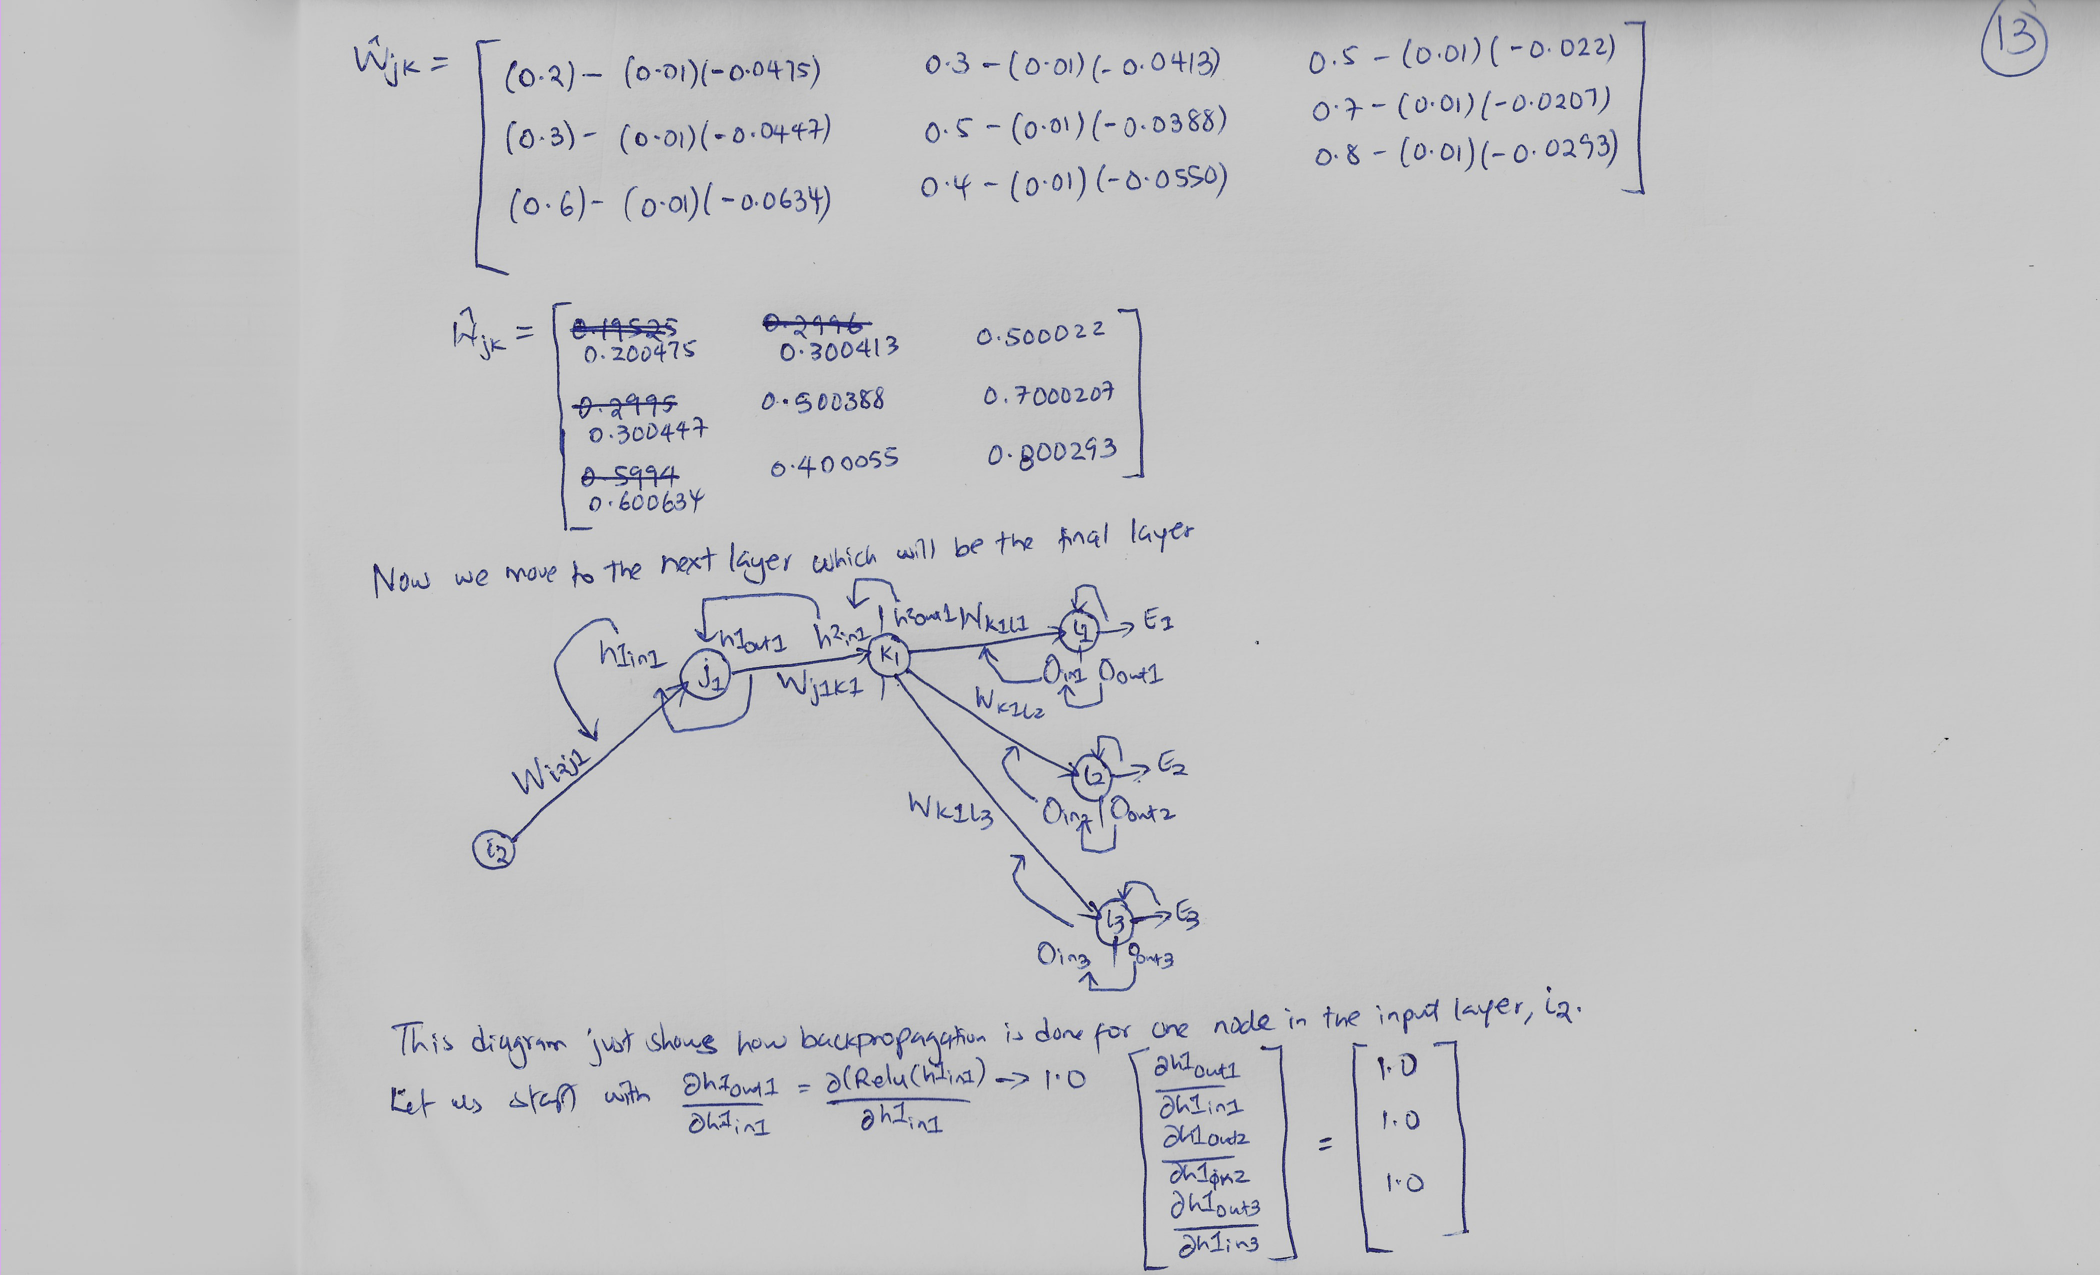 13
Ŵjk = [ (0.2) - (0.01)(-0.0475) 0.3 - (0.01)(-0.0413) 0.5 - (0.01)(-0.022)
(0.3) - (0.01)(-0.0447) 0.5 - (0.01)(-0.0388) 0.7 - (0.01)(-0.0207)
(0.6) - (0.01)(-0.0634) 0.4 - (0.01)(-0.0550) 0.8 - (0.01)(-0.0293) ]
Ŵjk = [ 0.19525 0.2996
0.200475 0.300413 0.500022
0.2995 0.500388 0.7000207
0.300447
0.5994 0.400055 0.800293
0.600634 ]
Now we move to the next layer which will be the final layer
h1in1 h1out1 h2in1 h2out1 Wk1l1 l1 E1
j1 Wj1k1 k1 Oin1 Oout1
Wk1l2
Wi2j1 l2 E2
Wk1l3 Oin2 Oout2
i2
l3 E3
Oin3 Oout3
This diagram just shows how backpropagation is done for one node in the input layer, i2.
Let us start with ∂h1out1/∂h1in1 = ∂(Relu(h1in1)/∂h1in1 → 1.0 [ ∂h1out1/∂h1in1
∂h1out2/∂h1in2
∂h1out3/∂h1in3 ] = [ 1.0
1.0
1.0 ]